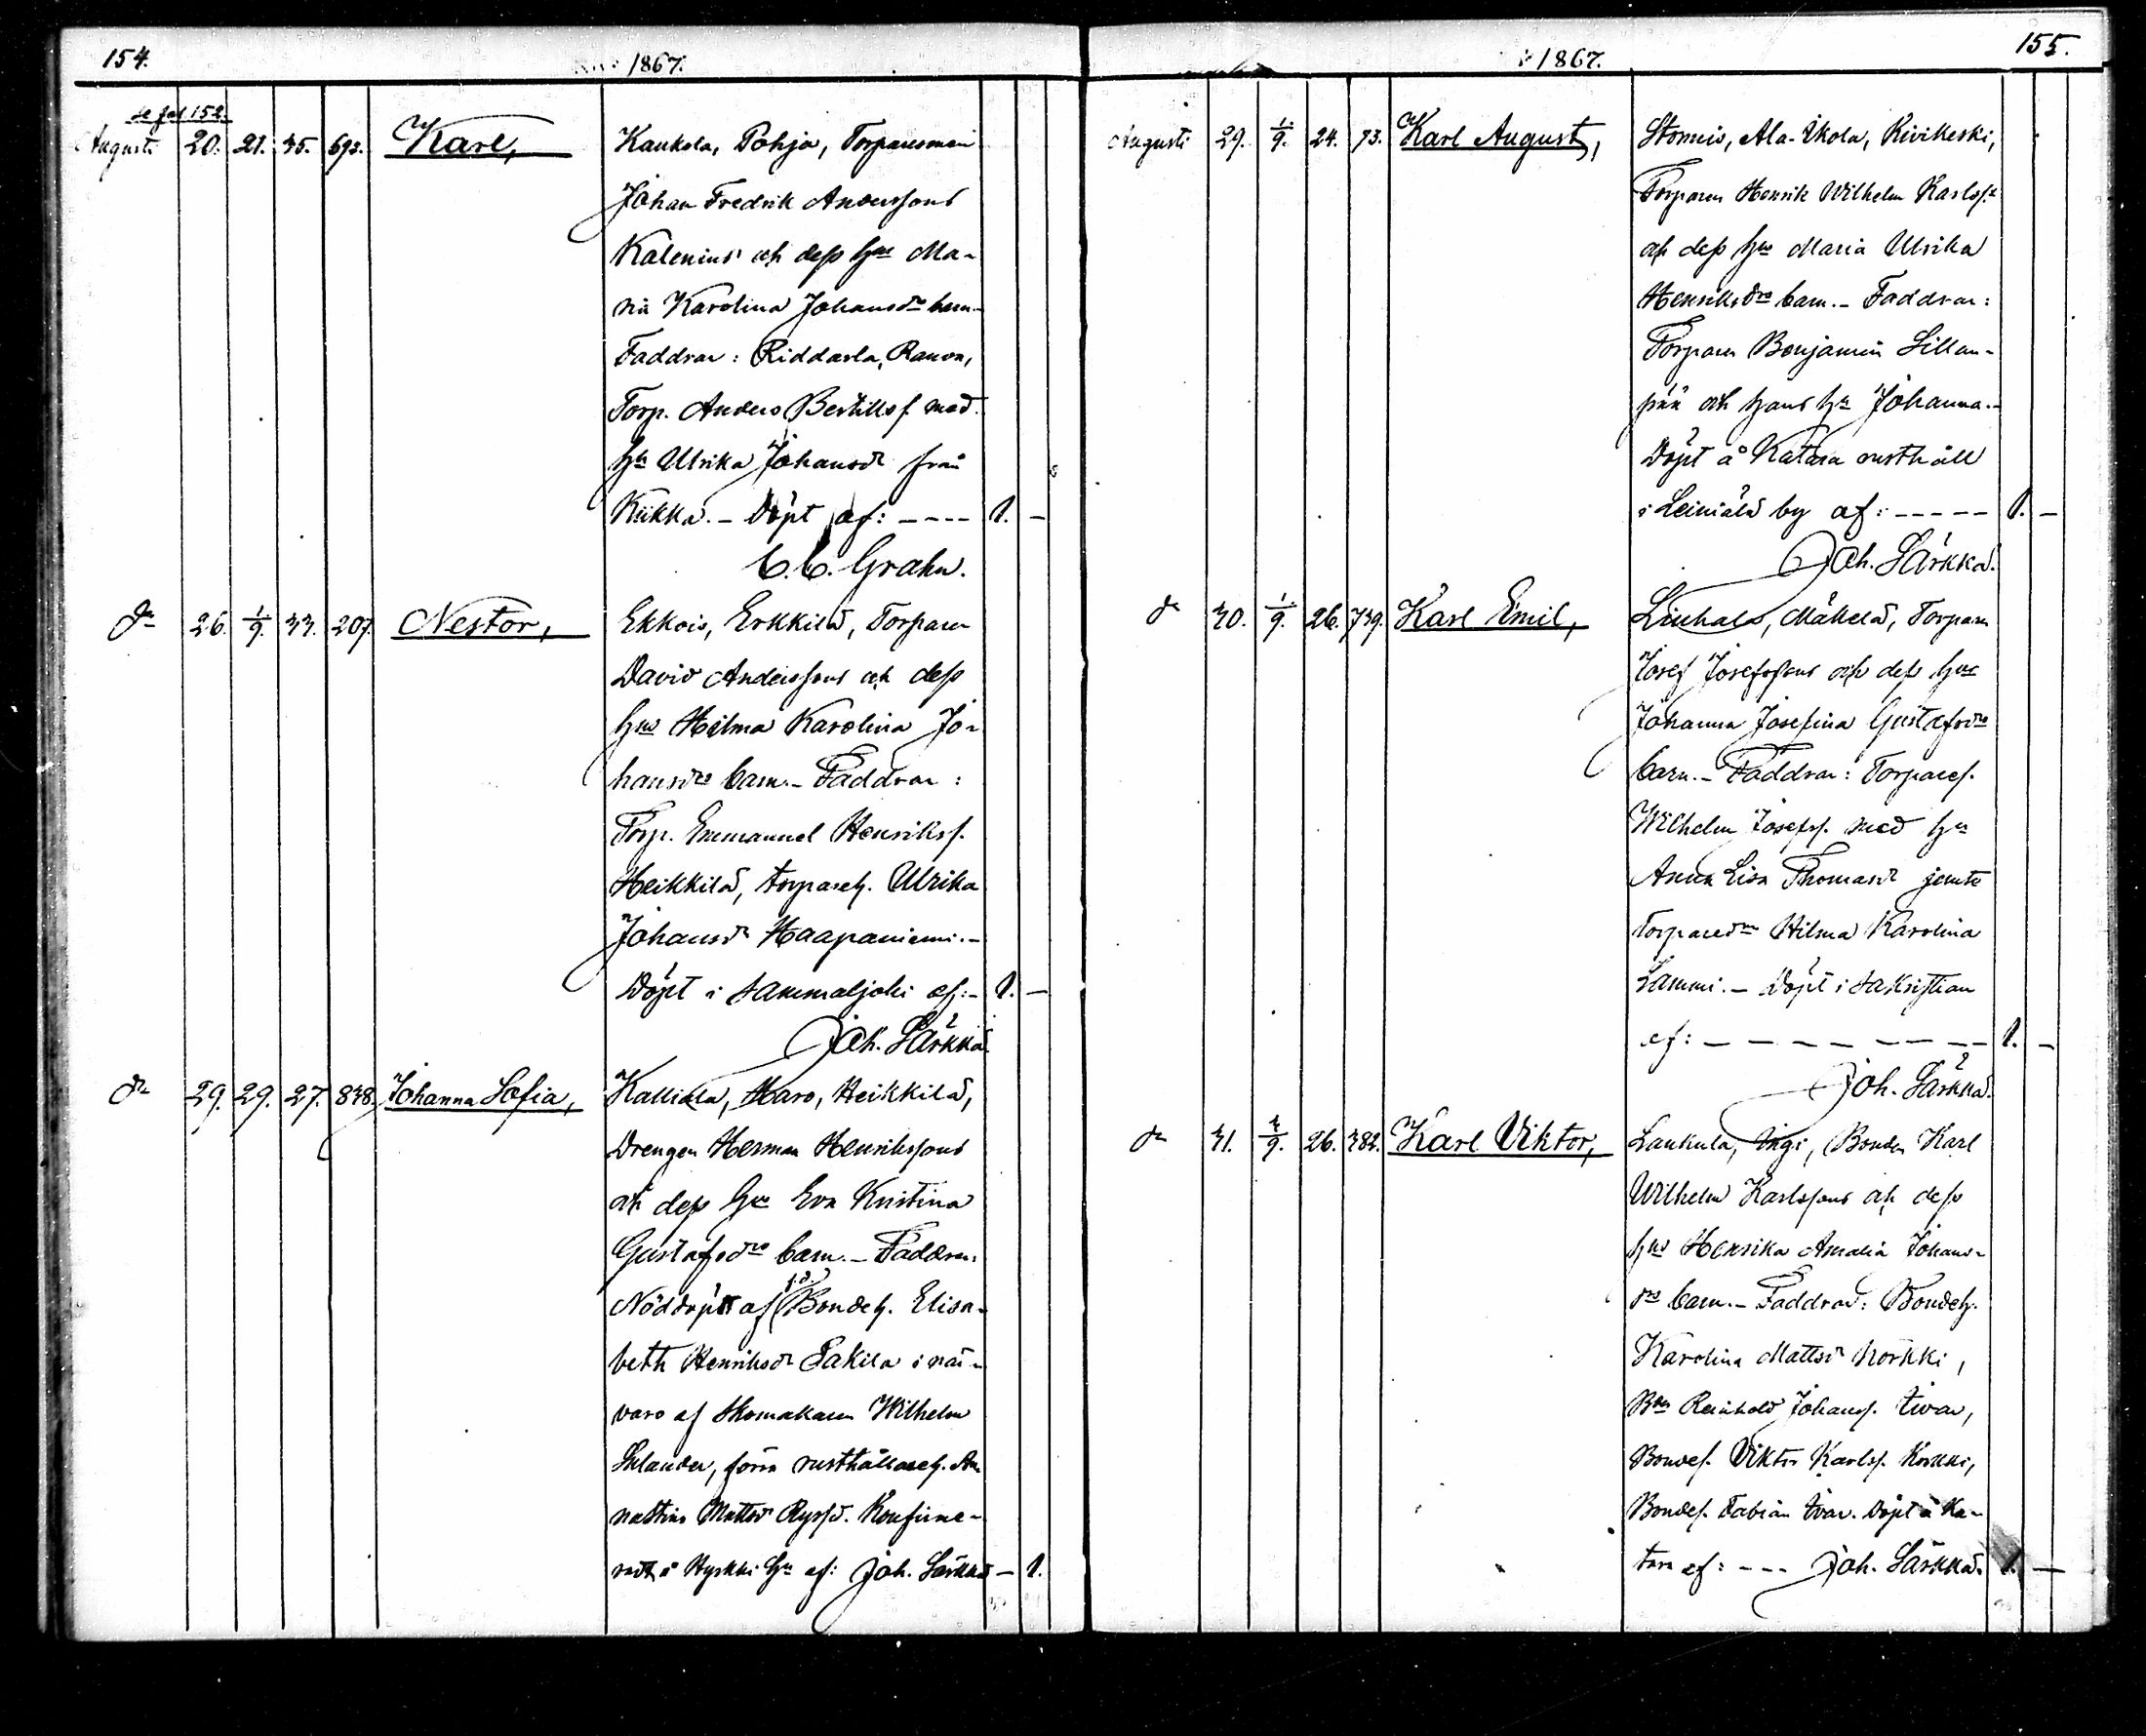 154.
1867.
se fol 152.
Augusti 20. 21. 35. 693. Karl, Kaukola, Pohja, Torparesonen
Johan Fredrik Anderssons
Kalenius och dess hus Ma-
ria Karolina Johansdrs barn.-
Faddrar: Riddarla, Ranva,
Torp. Anders Bertillsf. med
hu Ulrika Johansdr från
Kiikka. - Döpt af: ---- 1. -
C. C. Grahn.
do 26. 1/9. 33. 207. Nestor, Ekkois, Erkkilä, Torparen
David Anderssons och dess
hus Hilma Karolina Jo-
hansdrs barn. - Faddrar:
Torp. Emmanuel Henrikss.
Heikkilä, torpareh. Ulrika
Johansdr Haapaniemi. -
Döpt i Sammaljoki af: - 1. -
Joh. Särkkä.
do 29. 29. 27. 838. Johanna Sofia, Kalliala, Haro, Heikkilä,
Drengen Herman Henrikssons
och dess hus Eva Kristina
Gustafsdrs barn. - Faddrar:
Nöddöpt af f.d. Bondeh. Elisa-
beth Henriksdr Pakila i när-
varo af Skomakaren Wilhelm
förra rusthållareh. An-
nastina Mattsdr Konfirme-
radt å Hyrkki hn af: Joh. Särkkä - 1.
155.
1867.
Augusti 29. 1/9. 24. 73. Karl August, Stormis, Ala-Ikola, Kivikeski,
Torparen Henrik Wilhelm Karlss.
och dess hus Maria Ulrika
Henriksdrs barn. - Faddrar:
Torparen Benjamin Sillan-
pää och hans hu Johanna. -
Döpt å Katara rusthåll
i Leiniälä by af: ----- 1. -
Joh. Särkkä.
do 30. 1/9. 26. 739. Karl Emil, Liuhala, Mäkelä, Torparen
Josef Josefssons och dess hus
Johanna Josefina Gustafsdrs
barn. - Faddrar: Torpares.
Wilhelm Josefss. med hu
Anna Lisa Thomasdr jemte
Torparedr Hilma Karolina
Lammi. - Döpt i Sakristian
af: - - - - - - - 1. -
Joh. Särkkä.
do 31. 3/9. 26. 382. Karl Viktor, Laukula, Yngi, Bonden Karl
Wilhelm Karlssons och dess
hus Henrika Amalia Johans-
drs barn. - Faddrar: Bondeh.
Karolina Mattsdr Körkki,
Bden Reinhold Johanss. Iivar,
Bondes. Viktor Karlss. Körkki,
Bondes. Fabian Ivar. Döpt å Ka-
tara af: --- Joh. Särkkä. 1. -